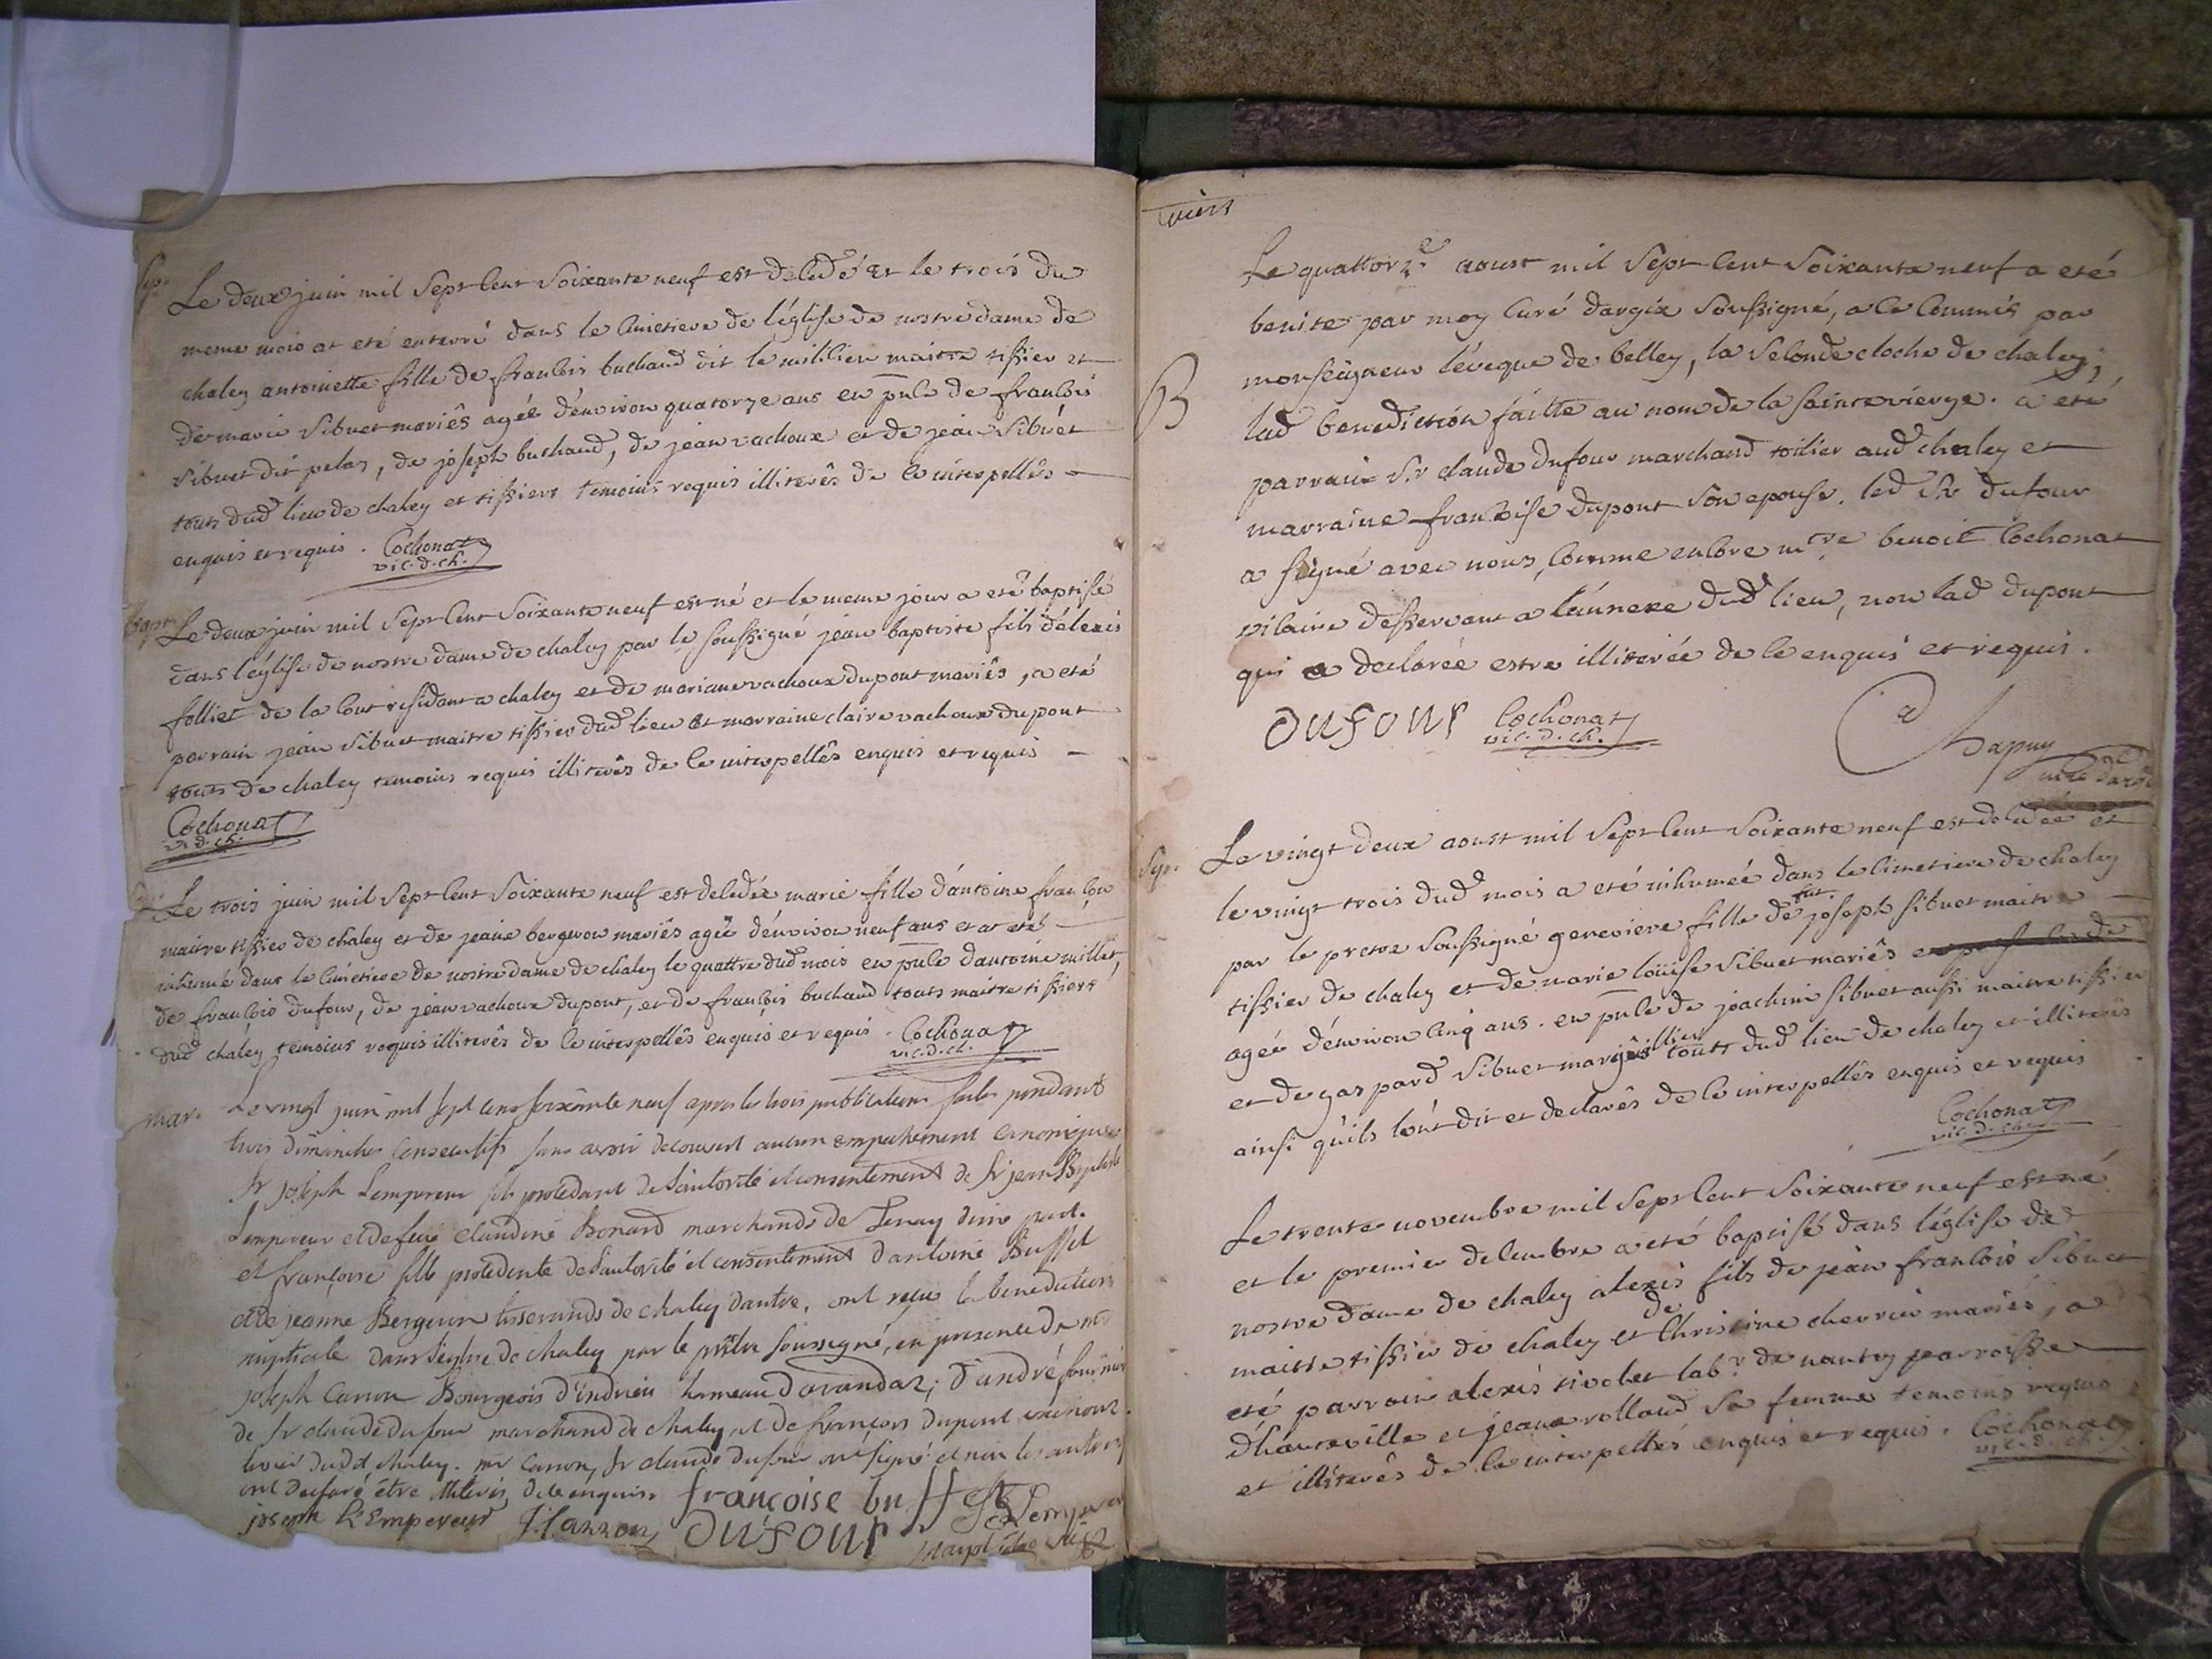 Sep.
Le deux juin mil sept cent soixante neuf est decedé et le trois du
meme mois at eté enterré dans le cimetiere de l'église de nostre dame de
chaley antoinette fille de francois buchaud dit le milicien maitre tissier et
de marie sibuet mariês agée d'environ quatorze ans en pnce de francois
sibuet dit pelaz, de joseph buchaud, de jean vachoux et de jean sibuet
touts dud lieu de chaley et tissiers temoins requis illiterês de ce interpellês
enquis et requis. Cochonat
vic. d. ch.
Bapt.
Le deux juin mil sept cent soixante neuf est né et le meme jour a eté baptisé
dans l'église de nostre dame de chaley par le soussigné jean baptiste fils d'alexis
folliet de la cout residant a chaley et de mariane vachoux dupont mariês, a eté
parrain jean sibuet maitre tissier dud lieu et marraine claire vachoux dupont
touts de chaley temoins requis illiterês de ce interpellês enquis et requis
Cochonat
v. d. ch.
Le trois juin mil sept cent soixante neuf est decedée marie fille d'antoine francon
maitre tissier de chaley et de jeane bergeron mariês agée d'environ neuf ans et at eté
inhumé dans le cimetiere de nostre dame de chaley le quattre dud mois en pnce d'antoine millet,
de francois dufour, de jean vachoux dupont, et de francois buchaud touts maitre tissiers
dud chaley temoins requis illiterês de ce interpellês enquis et requis. Cochonat
vic. d. ch.
mar.
Le vingt juin mil sept cens soixante neuf apres les trois publications faites pendant
trois dimanches consecutifs sans avoir decouvert aucun empechement canonique
Sr joseph Lempereur fils procedant de l'autorité et consentement de Sr jean Baptiste
Lempereur et de feüe Claudine Bonard marchands de Tenay d'une part.
et françoise fille procedente de l'autorité et consentement d'antoine Buffet
et de jeanne Bergeron tisserands de chaley d'autre, ont reçu la benediction
nuptiale dans l'eglise de chaley par le prêtre soussigné, en presence de mr
joseph Carron Bourgeois d'indrieu hameau d'arandaz; d'andré fournier
de Sr claude dufour marchand de chaley et de françois dupont
dud chaley. mr Carron, Sr claude dufour ont signé et non les autres
ont declaré être illiterés de ce enquis. françoise buffet
joseph L'Empereur J. Carron DUFOUR
viers
Le quattorze aoust mil sept cent soixante neuf a eté
benite par moy curé dargix soussigné, a ce commis par
monseigneur l'éveque de belley, la seconde cloche de chaley;
B
lad benediction faitte au nom de la sainte vierge. a eté
parrain sr claude dufour marchand toilier aud chaley et
marraine francoise dupont son epouse. led sr dufour
a signé avec nous, comme encore mtre benoit Cochonat
vicaire desservant a l'annexe dud lieu, non lad dupont
qui a declarée estre illiterée de ce enquis et requis.
DUFOUR Cochonat
vic. d. ch.
Chapuy
curé dargix
Sep.
Le vingt deux aoust mil sept cent soixante neuf est decedée et
le vingt trois dud mois a eté inhumée dans le cimetiere de chaley
par le pretre soussigné genevieve fille de fut joseph sibuet maitre
tissier de chaley et de marie loüise sibuet mariês
agée d'environ cinq ans. en pnce de joachim sibuet aussi maitre tissier
et de gaspard sibuet marguillier touts dud lieu de chaley et illiterês
ainsi qu'ils l'ont dit et declarês de ce interpellês enquis et requis
Cochonat
vic. d. ch.
Le trente novembre mil sept cent soixante neuf est né
et le premier decembre a eté baptisé dans l'église de
nostre dame de chaley alexis fils de jean francois sibuet
maitre tissier de chaley et de christine chevrier mariés, a
eté parrain alexis rivolet labr de nantuy parroisse
d'hauteville et jeane rolland sa femme temoins requis
et illiterês de ce interpellés enquis et requis. Cochonat
vic. d. ch.